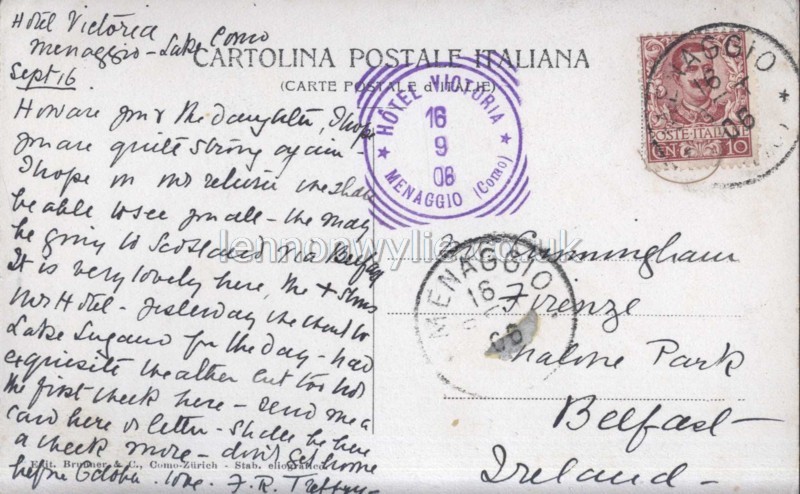 Hotel Victoria
Menaggio - Lake Como
Sept 16
CARTOLINA POSTALE ITALIANA
(CARTE POSTALE d'ITALIE)
How are you & the daughter, I hope
you are quite strong again -
I hope on our return we shall
be able to see you all - we may
be going to Scotland via Belfast
It is very lovely here, the X marks
our Hotel - yesterday we went to
Lake Lugano for the day - had
exquisite weather but too hot
the first week here - send me a
card here or letter - shall be here
a week more - don't get home
before October. love. F.R.
HÔTEL VICTORIA
16
9
06
MENAGGIO (Como)
MENAGGIO
16
06
POSTE ITALIANE
CEN 10
MENAGGIO
16
06
Cunningham
Firenze
Malone Park
Belfast -
Ireland -
Edit. Brunner & C., Como-Zürich - Stab. eliografico
lennonwylie.co.uk